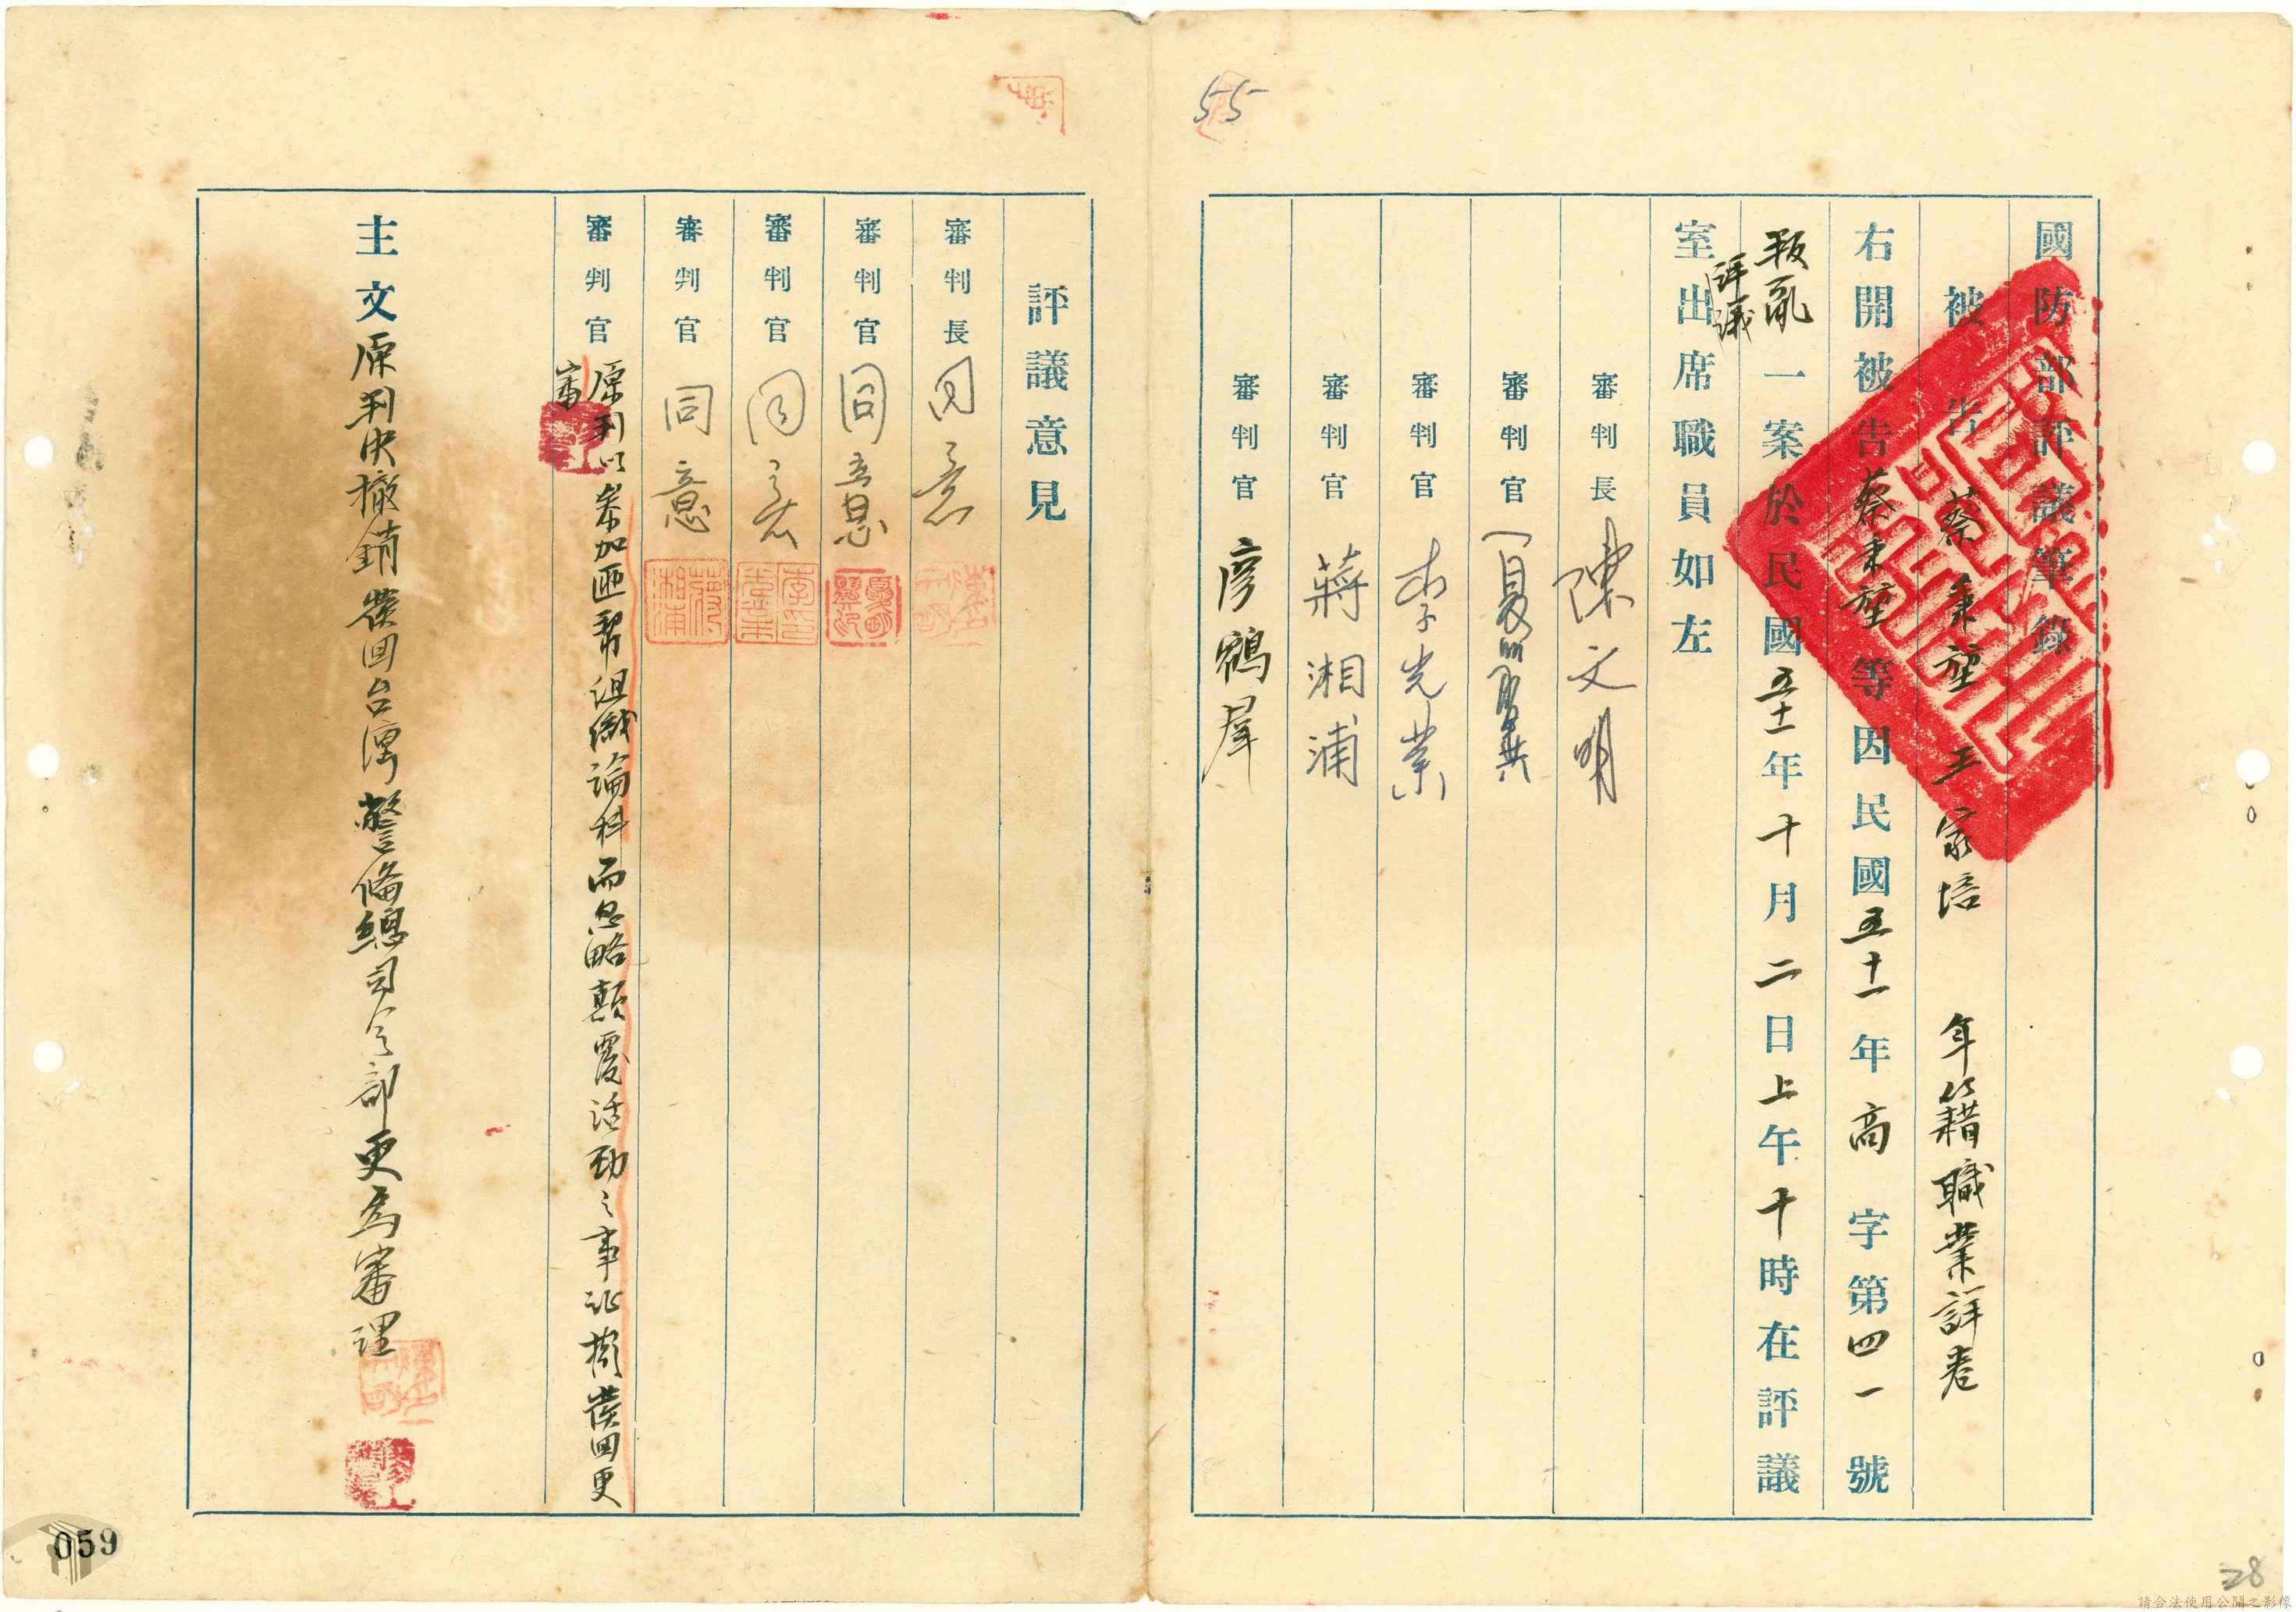 國防部評議筆錄
被告 蔡秉堃 王家培 年籍職業詳卷
右開被告蔡秉堃等因民國五十一年高字第四一號
叛亂一案於民國五十一年十月二日上午十時在評議
評議
室出席職員如左
審判長 陳文明
審判官 夏明翼
審判官 李光業
審判官 蔣湘浦
審判官 彦鶴羣
55
評議意見
審判長 同意
審判官 同意
審判官 同意
審判官 同意
審判官 原判以參加匪幫組織論科而忽略顛覆活動之事証擬發回更
審
主文 原判決撤銷發回台灣警備總司令部更為審理
059
28
請合法使用公開之影像